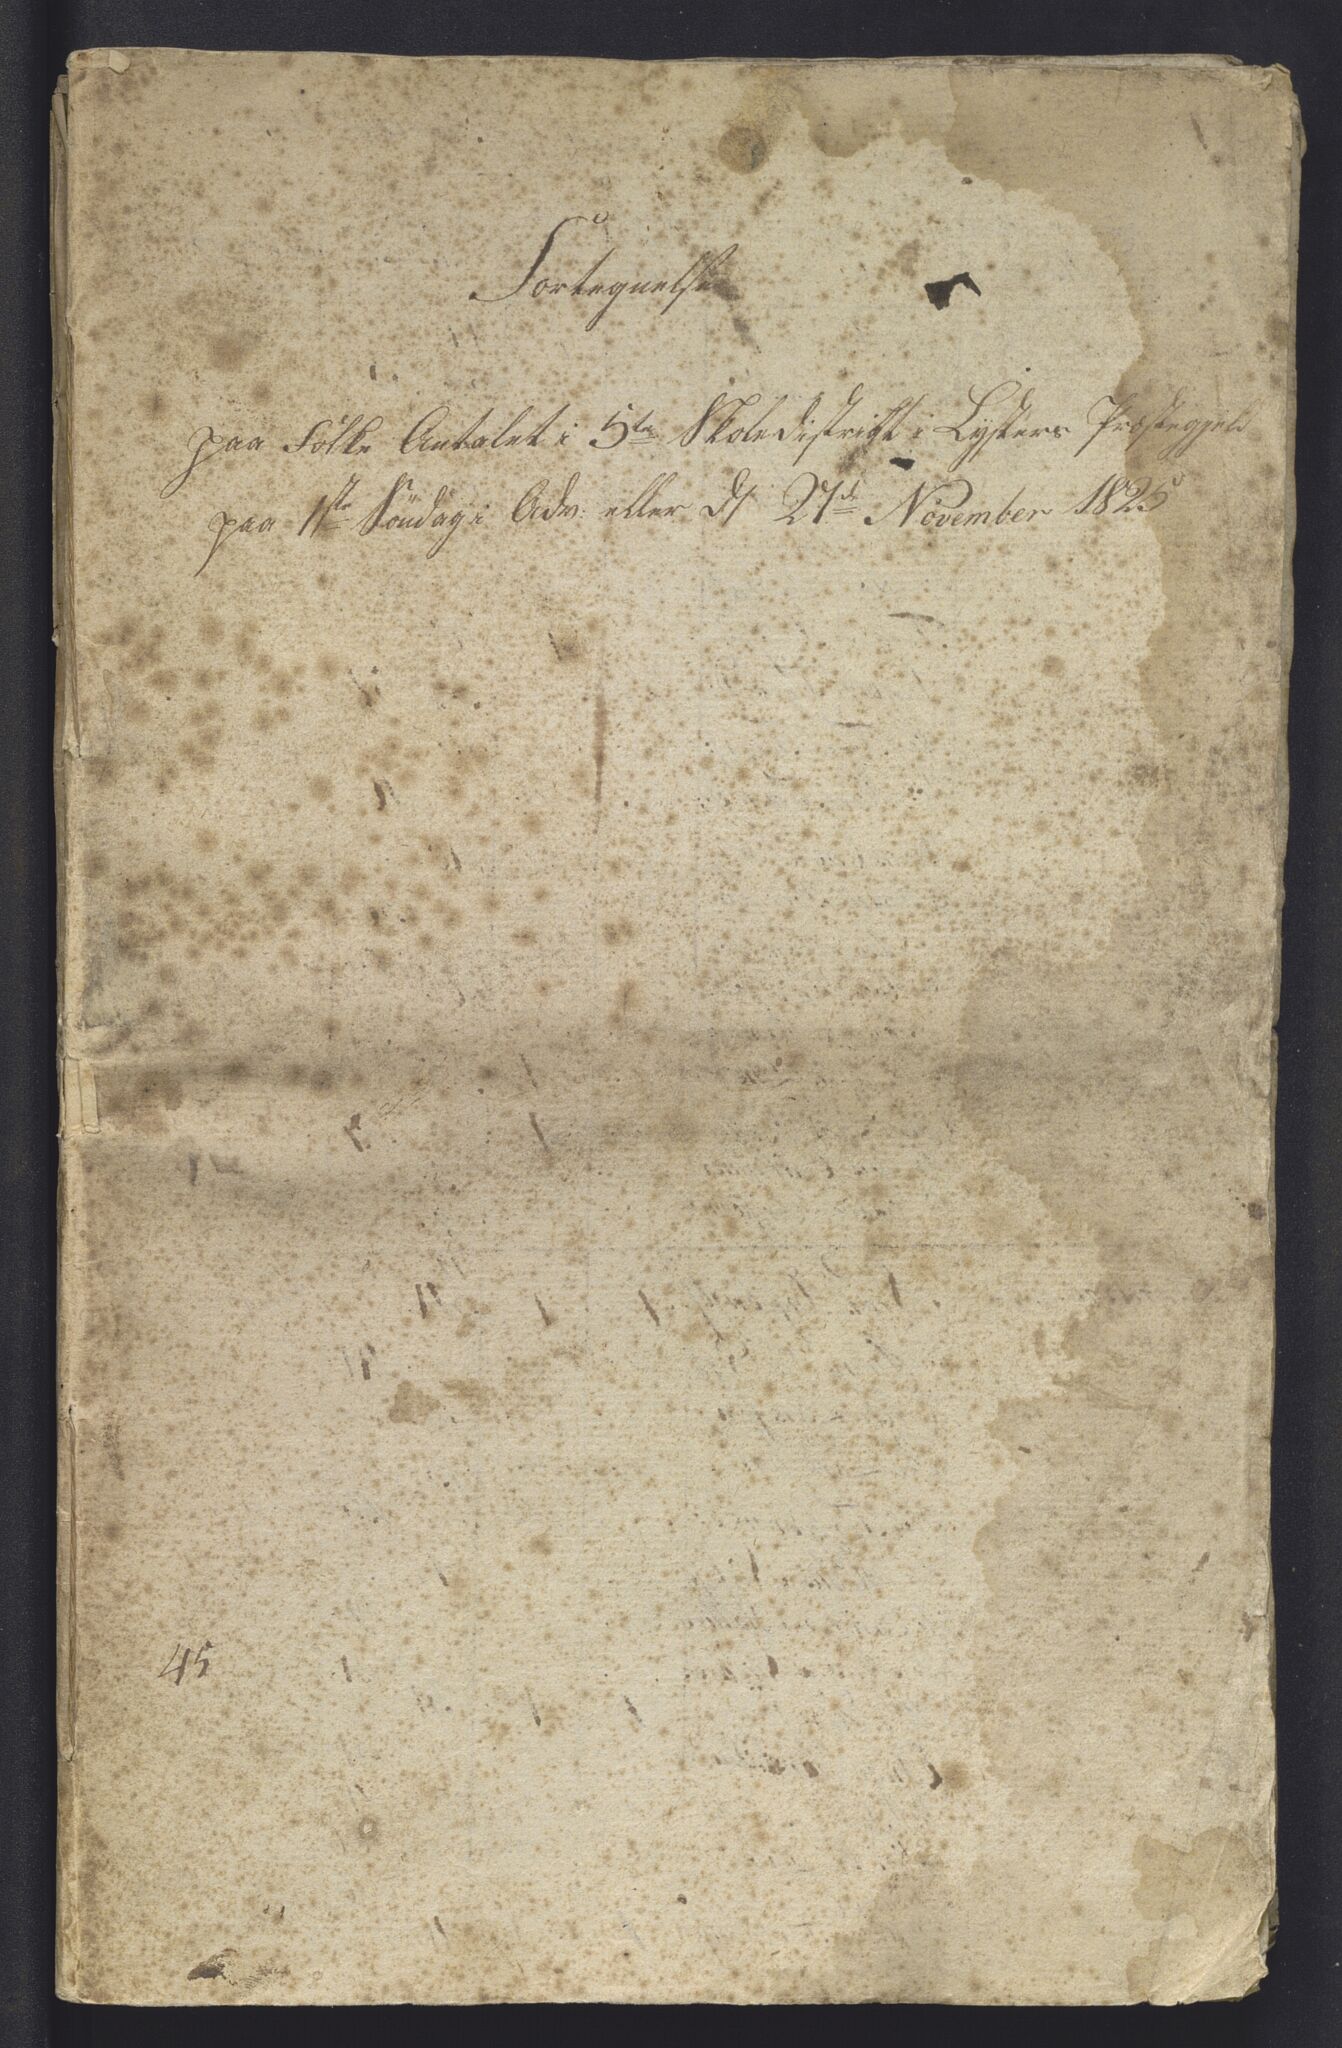 Fortegnelse
paa Folke Antalet i 5te Skoledistrikt i Lysters Præstegjeld
paa 1ste Søndag i Adv: eller d. 27de November 1825
45